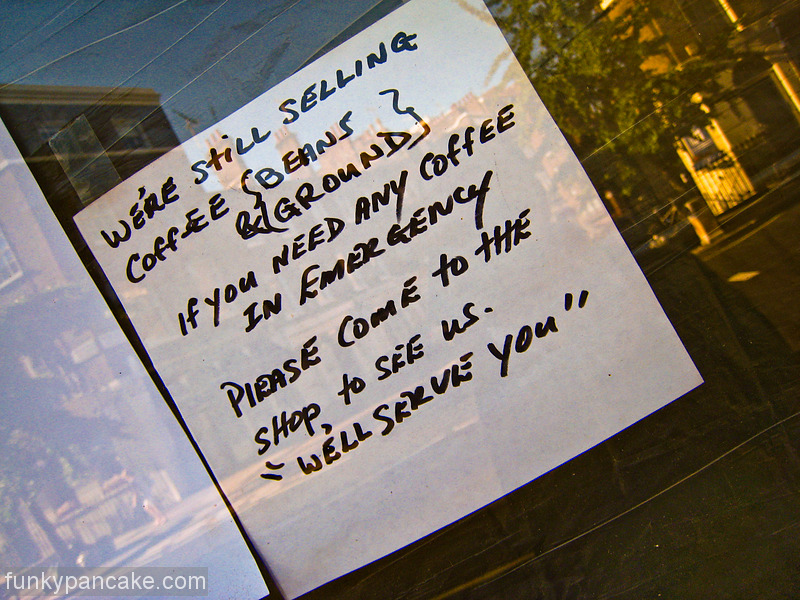 WE'RE STILL SELLING
COFFEE {BEANS }
&{GROUND}
IF YOU NEED ANY COFFEE
IN EMERGENCY
PLEASE COME TO THE
SHOP, TO SEE US.
"WE'LL SERVE YOU"
funkypancake.com